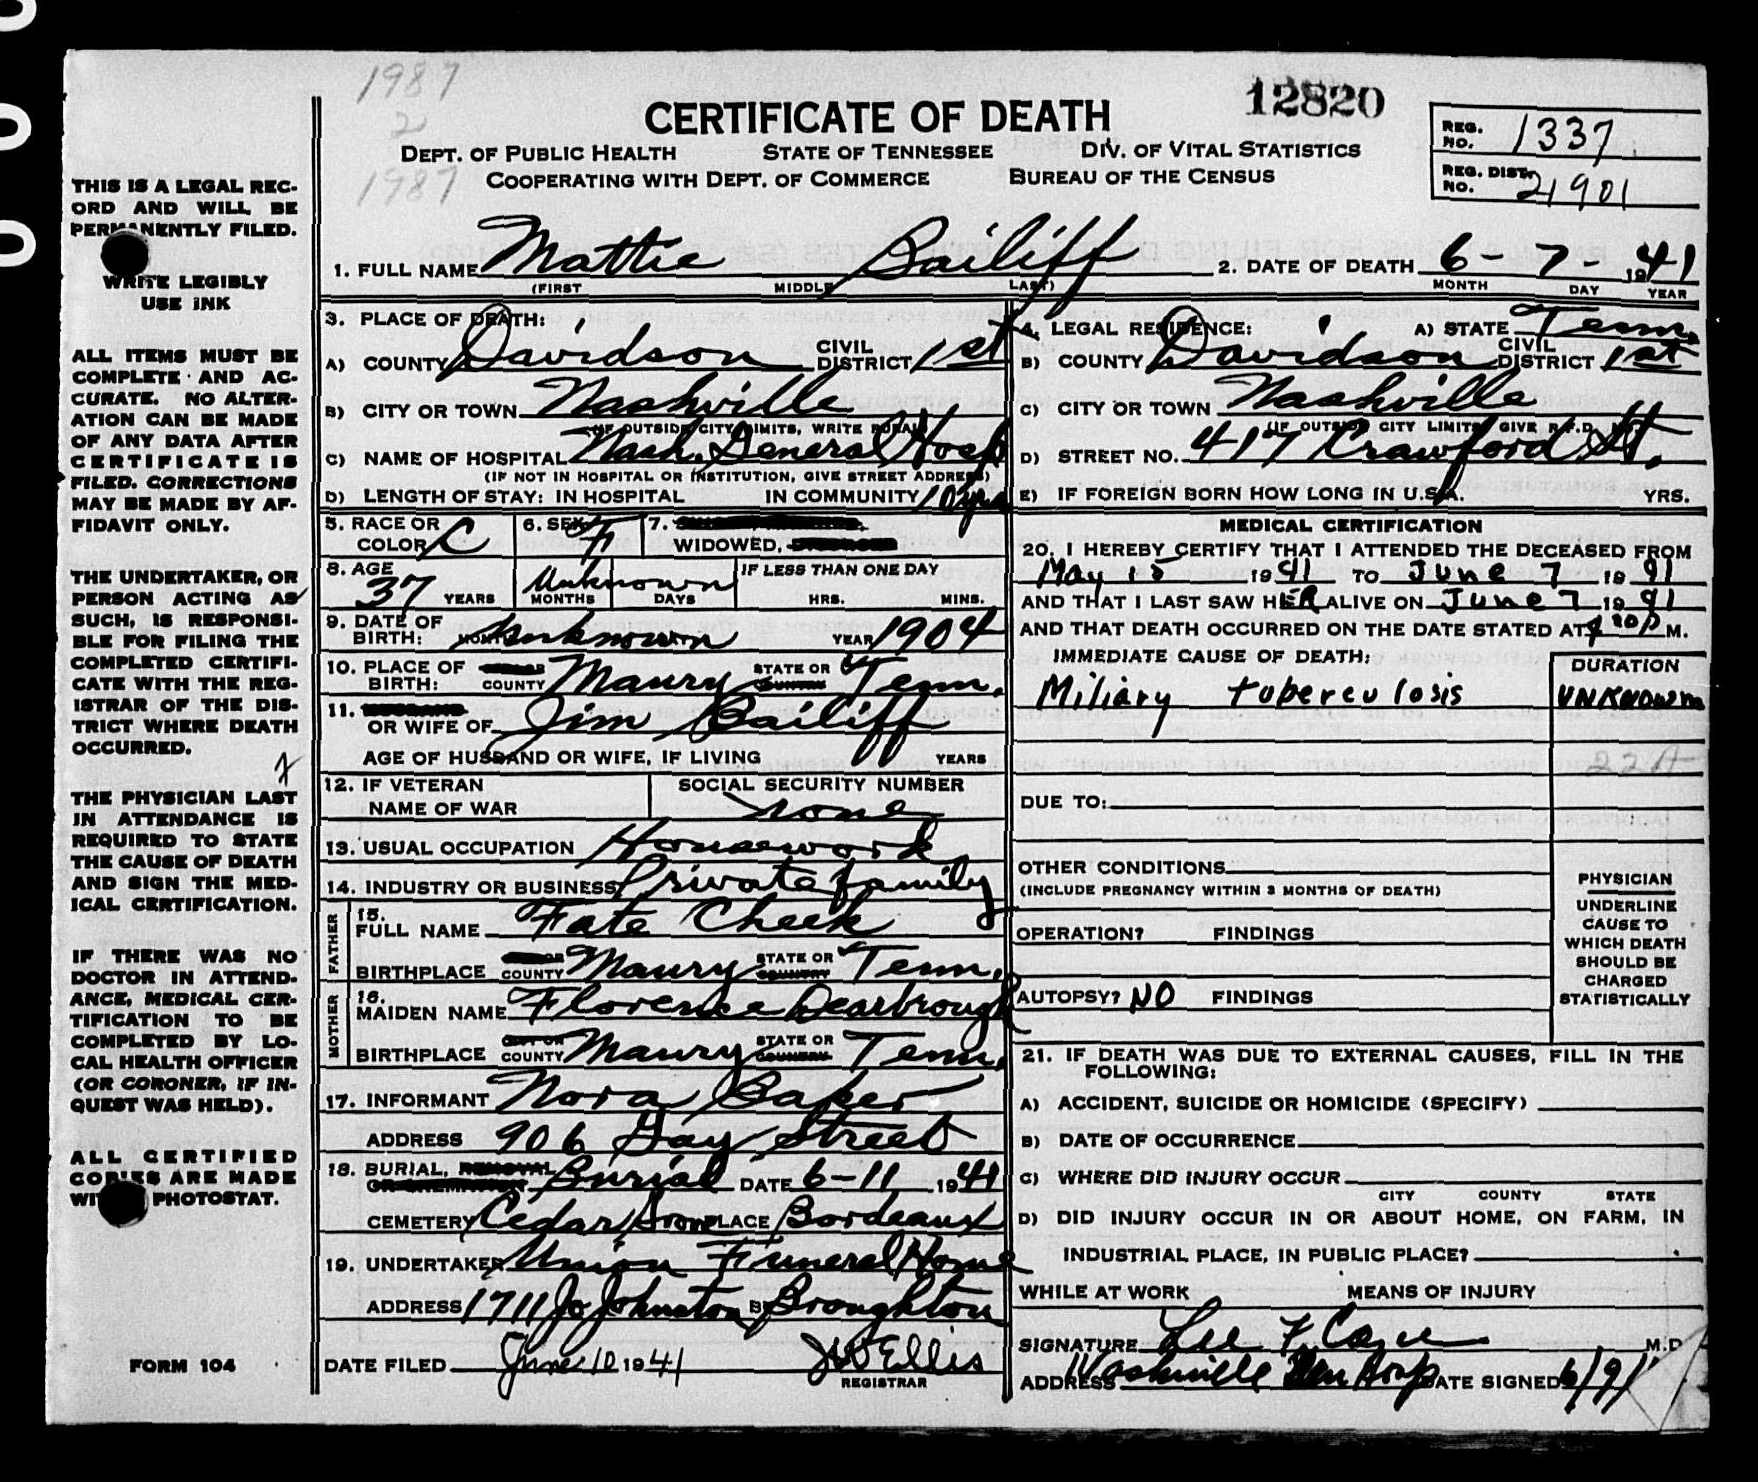 1987
2
1987
12820
CERTIFICATE OF DEATH
DEPT. OF PUBLIC HEALTH STATE OF TENNESSEE DIV. OF VITAL STATISTICS
COOPERATING WITH DEPT. OF COMMERCE BUREAU OF THE CENSUS
REG. NO. 1337
REG. DIST. NO. 21901
THIS IS A LEGAL REC-
ORD AND WILL BE
PERMANENTLY FILED.
WRITE LEGIBLY
USE INK
ALL ITEMS MUST BE
COMPLETE AND AC-
CURATE. NO ALTER-
ATION CAN BE MADE
OF ANY DATA AFTER
CERTIFICATE IS
FILED. CORRECTIONS
MAY BE MADE BY AF-
FIDAVIT ONLY.
THE UNDERTAKER, OR
PERSON ACTING AS
SUCH, IS RESPONSI-
BLE FOR FILING THE
COMPLETED CERTIFI-
CATE WITH THE REG-
ISTRAR OF THE DIS-
TRICT WHERE DEATH
OCCURRED.
THE PHYSICIAN LAST
IN ATTENDANCE IS
REQUIRED TO STATE
THE CAUSE OF DEATH
AND SIGN THE MED-
ICAL CERTIFICATION.
IF THERE WAS NO
DOCTOR IN ATTEND-
ANCE, MEDICAL CER-
TIFICATION TO BE
COMPLETED BY LO-
CAL HEALTH OFFICER
(OR CORONER, IF IN-
QUEST WAS HELD).
ALL CERTIFIED
COPIES ARE MADE
WITH PHOTOSTAT.
FORM 104
1. FULL NAME Mattie Bailiff 2. DATE OF DEATH 6-7-1941
(FIRST MIDDLE LAST) MONTH DAY YEAR
3. PLACE OF DEATH:
A) COUNTY Davidson CIVIL DISTRICT 1st
B) CITY OR TOWN Nashville
(IF OUTSIDE CITY LIMITS, WRITE RURAL)
C) NAME OF HOSPITAL Nash. General Hosp
(IF NOT IN HOSPITAL OR INSTITUTION, GIVE STREET ADDRESS)
D) LENGTH OF STAY: IN HOSPITAL IN COMMUNITY 10 yrs
4. LEGAL RESIDENCE: A) STATE Tenn.
B) COUNTY Davidson CIVIL DISTRICT 1st
C) CITY OR TOWN Nashville
(IF OUTSIDE CITY LIMITS, GIVE R.F.D.
D) STREET NO. 417 Crawford St.
E) IF FOREIGN BORN HOW LONG IN U.S.A. YRS.
5. RACE OR COLOR C 6. SEX F 7. WIDOWED,
8. AGE 37 YEARS Unknown MONTHS DAYS IF LESS THAN ONE DAY HRS. MINS.
9. DATE OF BIRTH: MONTH Unknown YEAR 1904
10. PLACE OF BIRTH: COUNTY Maury STATE OR Tenn.
11. OR WIFE OF Jim Bailiff
AGE OF HUSBAND OR WIFE, IF LIVING YEARS
12. IF VETERAN NAME OF WAR SOCIAL SECURITY NUMBER none
13. USUAL OCCUPATION Housework
14. INDUSTRY OR BUSINESS Private family
FATHER
15. FULL NAME Fate Cheek
BIRTHPLACE COUNTY Maury STATE OR COUNTRY Tenn.
MOTHER
16. MAIDEN NAME Florence Dearbrough
BIRTHPLACE CITY OR COUNTY Maury STATE OR COUNTRY Tenn.
17. INFORMANT Nora Baker
ADDRESS 906 Gay Street
18. BURIAL, REMOVAL OR CREMATION Burial DATE 6-11 1941
CEMETERY Cedar Grove PLACE Bordeaux
19. UNDERTAKER Union Funeral Home
ADDRESS 1711 Jo Johnston BY Broughton
DATE FILED June 10 1941 J W Ellis
REGISTRAR
MEDICAL CERTIFICATION
20. I HEREBY CERTIFY THAT I ATTENDED THE DECEASED FROM
May 15 1941 TO June 7 1941
AND THAT I LAST SAW HER ALIVE ON June 7 1941
AND THAT DEATH OCCURRED ON THE DATE STATED AT M.
IMMEDIATE CAUSE OF DEATH: DURATION
Miliary tuberculosis UNKNOWN
22A
DUE TO:
OTHER CONDITIONS
(INCLUDE PREGNANCY WITHIN 3 MONTHS OF DEATH)
OPERATION? FINDINGS
AUTOPSY? NO FINDINGS
PHYSICIAN
UNDERLINE
CAUSE TO
WHICH DEATH
SHOULD BE
CHARGED
STATISTICALLY
21. IF DEATH WAS DUE TO EXTERNAL CAUSES, FILL IN THE
FOLLOWING:
A) ACCIDENT, SUICIDE OR HOMICIDE (SPECIFY)
B) DATE OF OCCURRENCE
C) WHERE DID INJURY OCCUR
CITY COUNTY STATE
D) DID INJURY OCCUR IN OR ABOUT HOME, ON FARM, IN
INDUSTRIAL PLACE, IN PUBLIC PLACE?
WHILE AT WORK MEANS OF INJURY
SIGNATURE Lee F. M.D.
ADDRESS Nashville Gen Hosp DATE SIGNED 6/9/